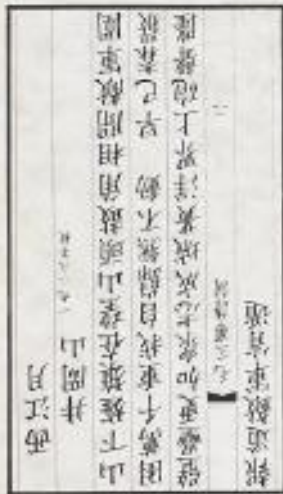 西江月
井岡山
一九二八年秋
山下旌旗在望山頭鼓角相聞敵軍圍
困萬千重我自巋然不動　早已森嚴
壁壘更加衆志成城黃洋界上砲聲隆
毛主席詩詞
報道敵軍宵遁